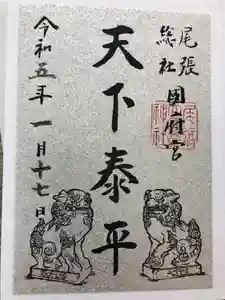 尾張
総社 国府宮
天下泰平
令和五年一月十七日